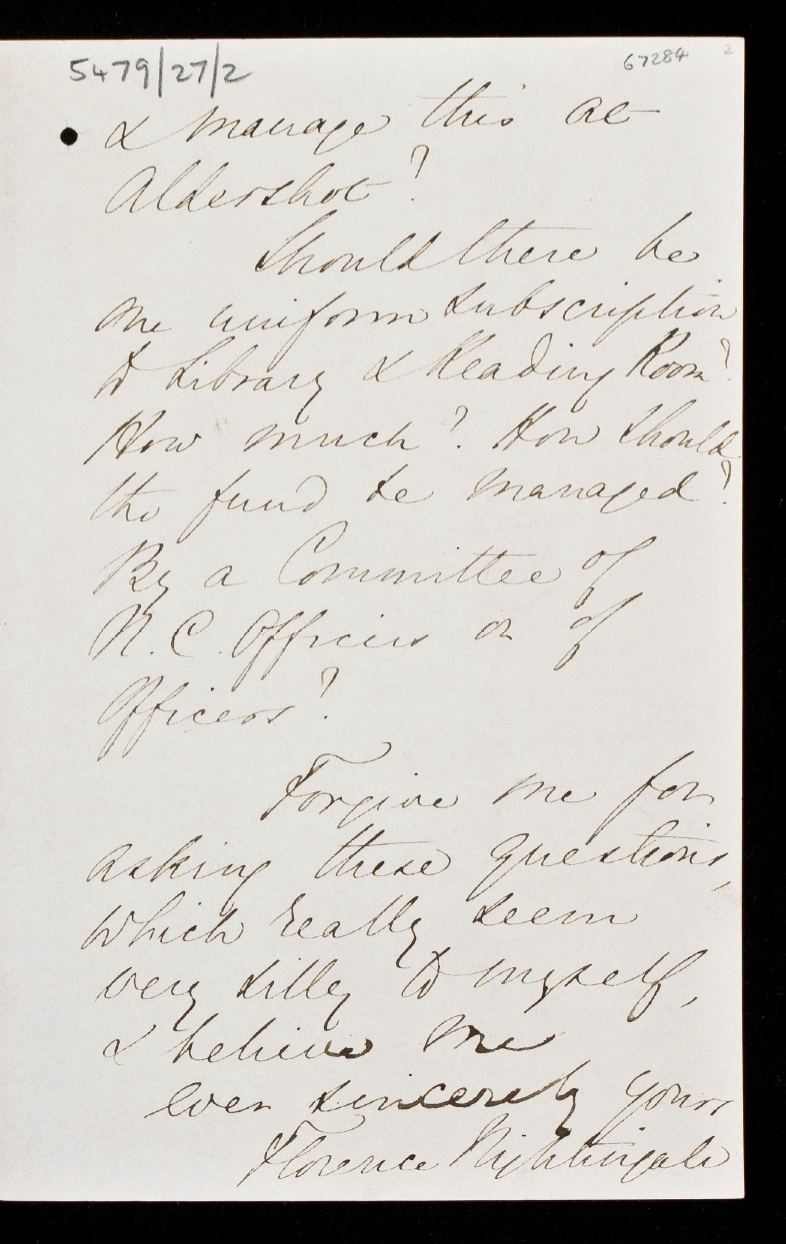 5479/27/2
67284 2
& manage this at
Aldershot?
Should there be
one uniform subscription
to Library & Reading Room?
How much? How should
the fund be managed?
By a Committee of
N.C. Officers or of
Officers?
Forgive me for
asking these questions,
which really seem
very silly to myself,
& believe me
ever sincerely yours
Florence Nightingale